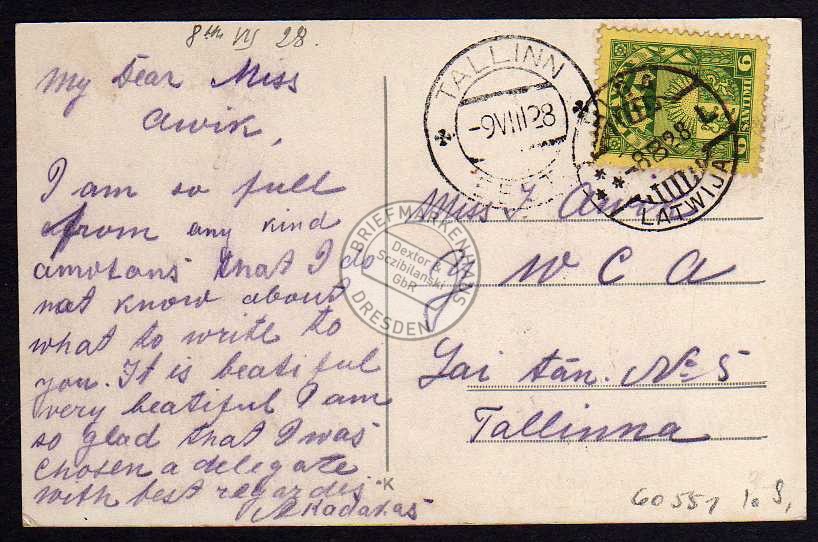 8th VIII 28.
My Dear Miss
Awik,
I am so full
from any kind
amotons that I do
not know about
what to write to
you. It is beatiful
very beatiful I am
so glad that I was
chosen a delegate
with best regardes
TALLINN
-9VIII28
EESTI
6
SANTIMI
6
-8828
LATWIJA
Miss J. Awik
Y W C A
Lai tän. № 5
Tallinna
BRIEFMARKENHAUS
Dextor &
Sczibilanski
GbR
DRESDEN
K
60551